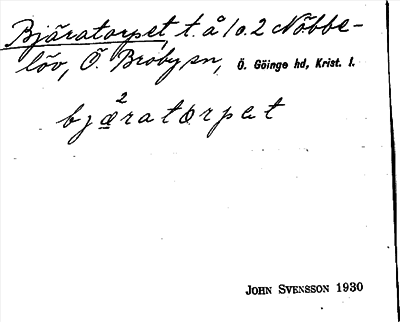 Bjäratorpet t. å 1 o. 2 Nöbbe-
löv, Ö. Broby sn, Ö. Göinge hd, Krist. l.
bjæ²ratorpet
JOHN SVENSSON 1930